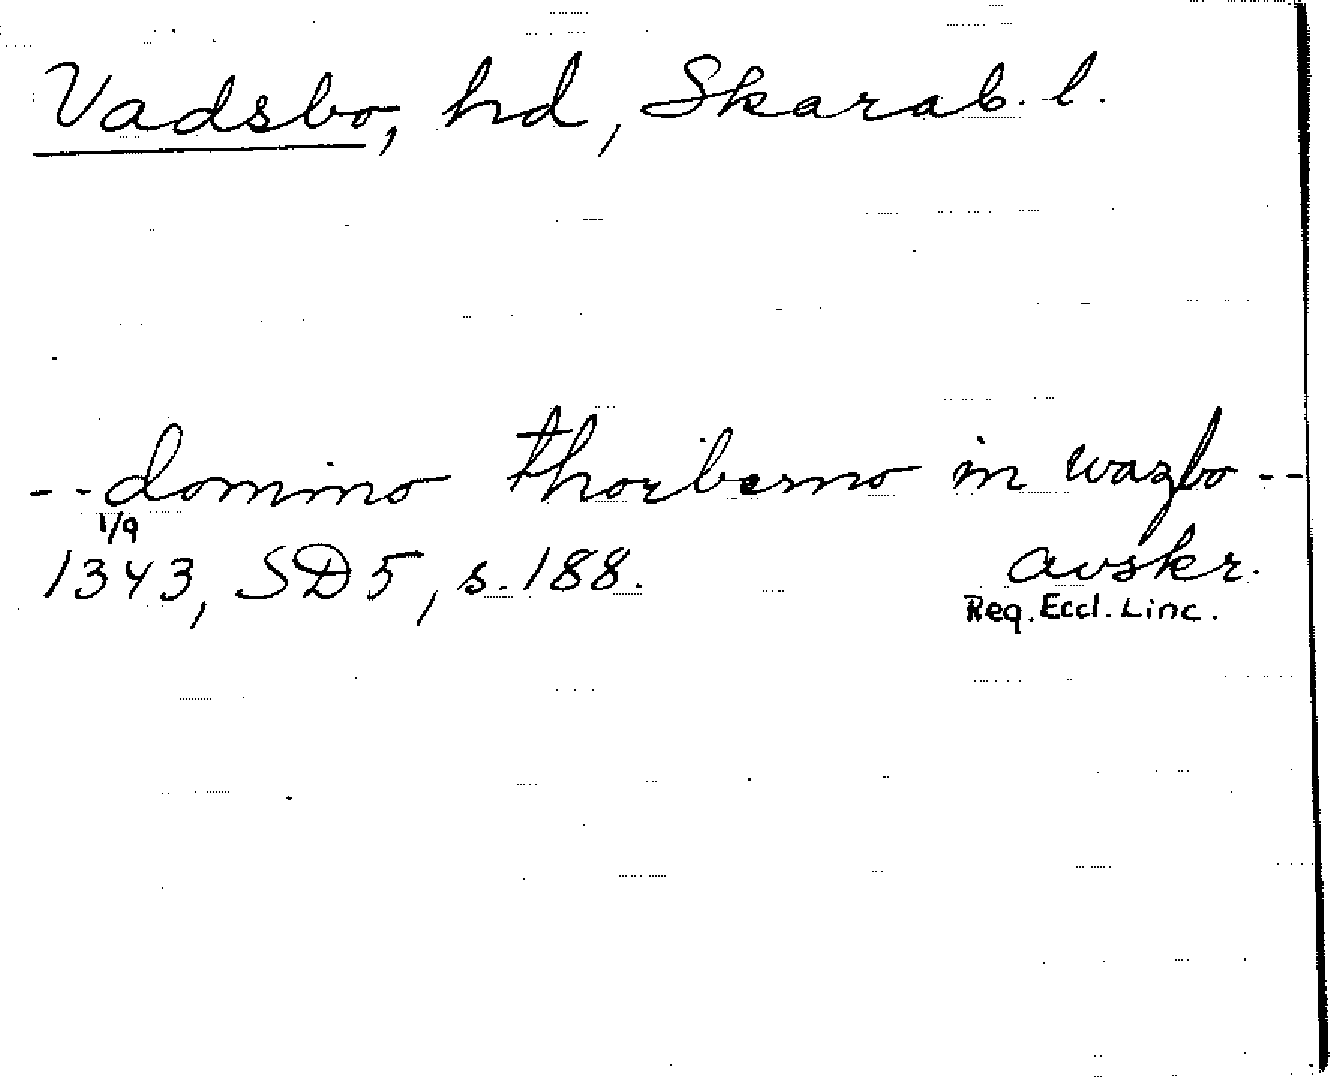 Vadsbo, hd, Skarab. l.
--domino thorberno in wazbo--
1/9
1343, SD5, s. 188. avskr.
Reg. Eccl. Linc.